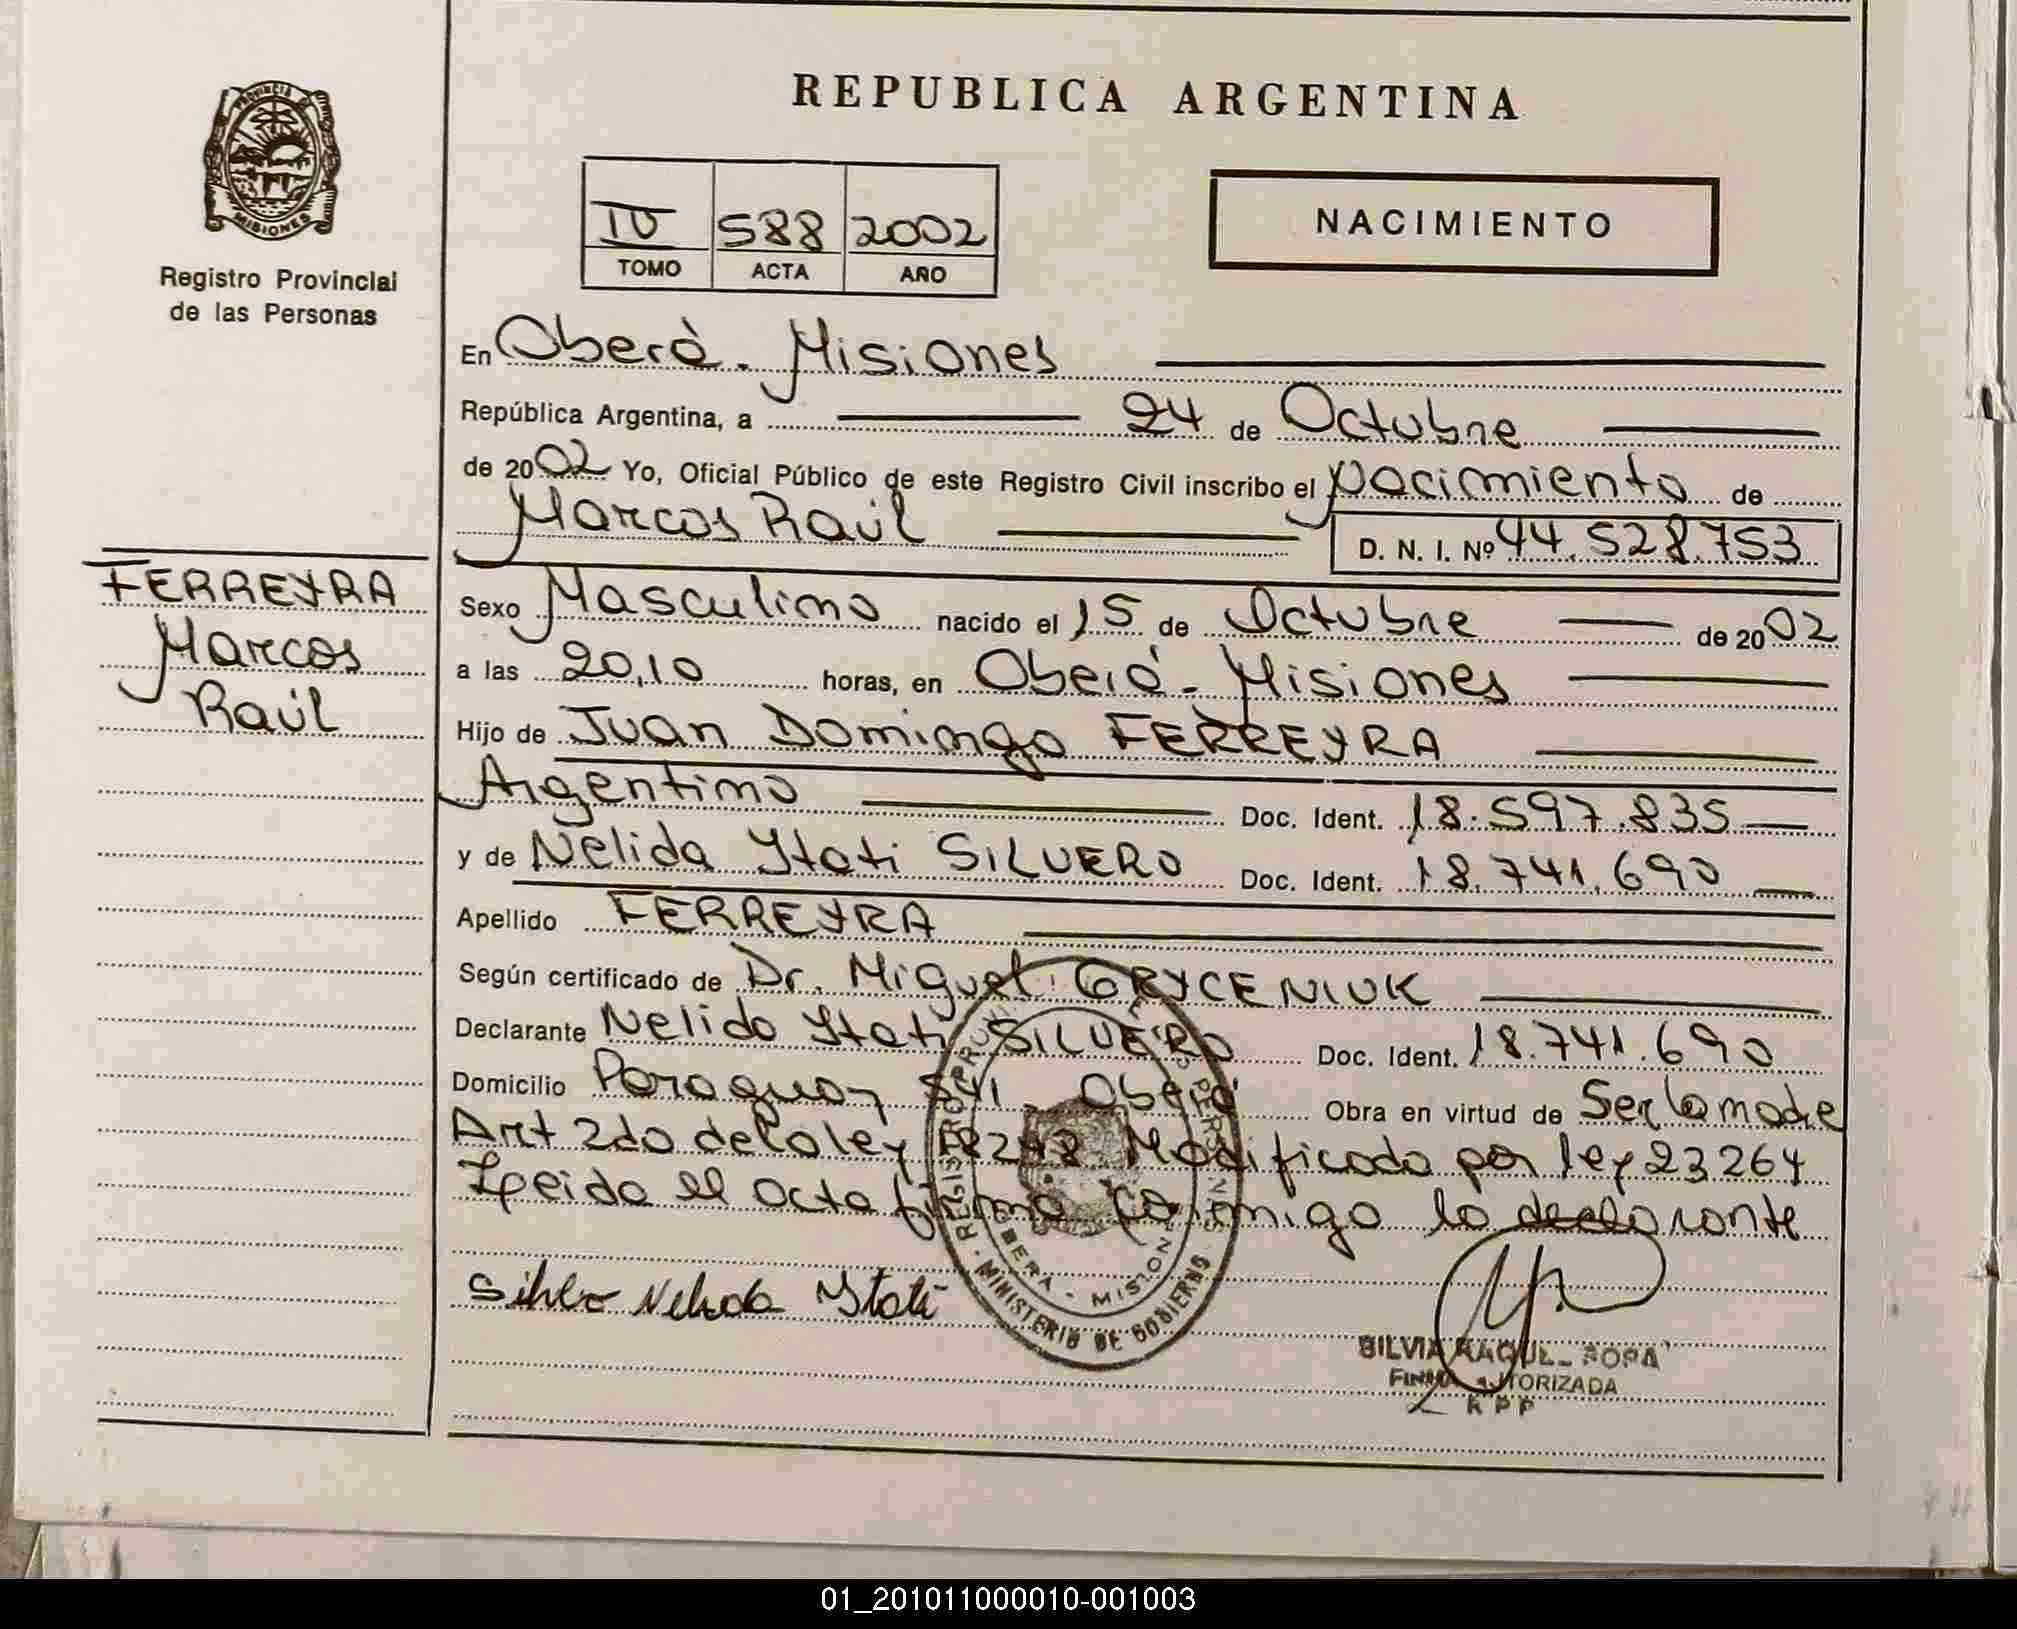 REPUBLICA ARGENTINA
PROVINCIA D
MISIONES
Registro Provincial
de las Personas
IV 588 2002
TOMO ACTA AÑO
NACIMIENTO
En Oberà - Misiones
República Argentina, a 24 de Octubre
de 2002 Yo, Oficial Público de este Registro Civil inscribo el nacimiento de
Marcos Raúl D. N. I. Nº 44.528.753
FERREYRA
Marcos
Raúl
Sexo Masculino nacido el 15 de Octubre de 2002
a las 20,10 horas, en Oberá - Misiones
Hijo de Juan Domingo FERREYRA
Argentino Doc. Ident. 18.597.835
y de Nelida Itati SILVERO Doc. Ident. 18.741.690
Apellido FERREYRA
Según certificado de Dr. Miguel GRYCENIUK
Declarante Nelida Itati SILVERO Doc. Ident. 18.741.690
Domicilio Paraguay 541 - Oberá Obra en virtud de Ser la madre
Art 2do de la ley 18248 Modificada por ley 23264
Leida el acta firma conmigo la declarante
Silvero Nelida Itati
MINISTERIO DE GOBIERNO
SILVIA RAQUEL POPA
FIRMA AUTORIZADA
R P P
01_201011000010-001003